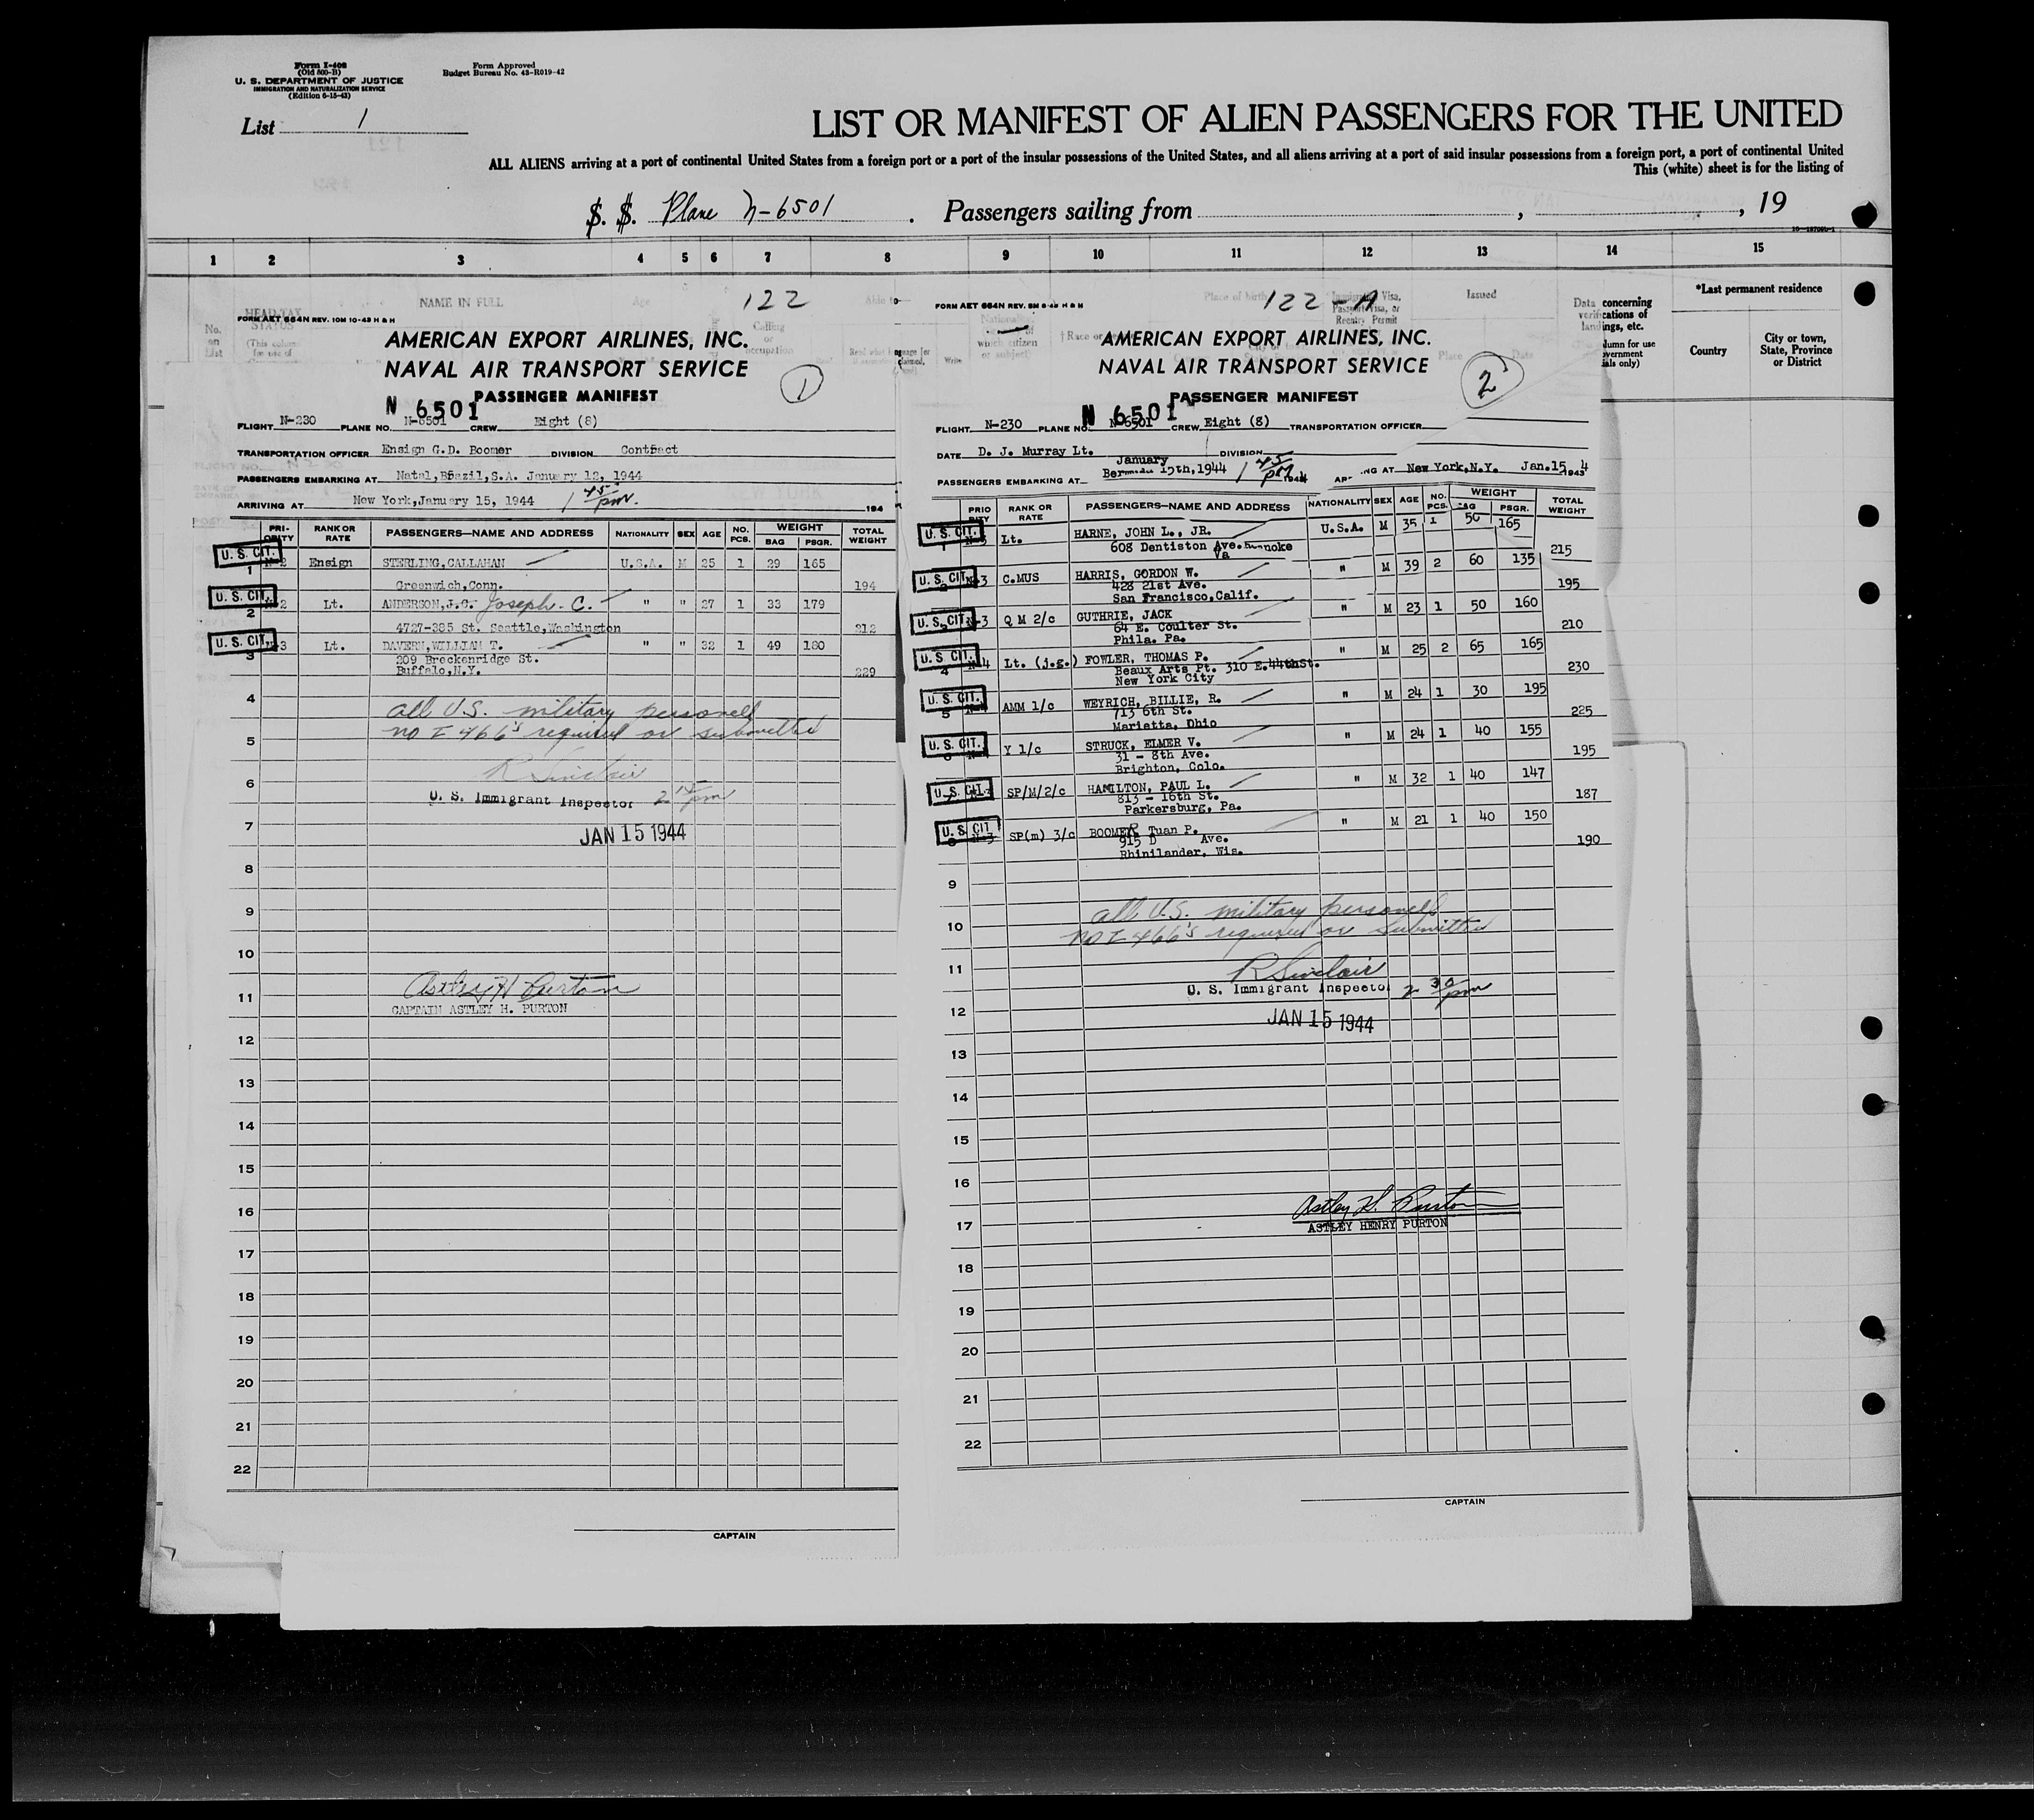 Form I-408
(Old 500-B)
U. S. DEPARTMENT OF JUSTICE
IMMIGRATION AND NATURALIZATION SERVICE
(Edition 6-15-43)
Form Approved
Budget Bureau No. 43-R019-42
List 1
LIST OR MANIFEST OF ALIEN PASSENGERS FOR THE UNITED
ALL ALIENS arriving at a port of continental United States from a foreign port or a port of the insular possessions of the United States, and all aliens arriving at a port of said insular possessions from a foreign port, a port of continental United
This (white) sheet is for the listing of
S. S. Plane N-6501 . Passengers sailing from , , 19
1 2 3 4 5 6 7 8 9 10 11 12 13 14 15
NAME IN FULL
HEAD-TAX
STATUS
No.
on
List
Age
Calling
or
occupation
Place of birth
Issued
Place
Date
Data concerning
verifications of
landings, etc.
*Last permanent residence
Country
City or town,
State, Province
or District
122
FORM AET 664N REV. 10M 10-43 H & H
AMERICAN EXPORT AIRLINES, INC.
NAVAL AIR TRANSPORT SERVICE
1
PASSENGER MANIFEST
N 6501
FLIGHT N-230 PLANE NO. N-6501 CREW Eight (8)
TRANSPORTATION OFFICER Ensign G.D. Boomer DIVISION Contract
PASSENGERS EMBARKING AT Natal, Brazil, S.A. January 12, 1944
ARRIVING AT New York, January 15, 1944 1 45 pm. 194
PRI-ORITY RANK OR RATE PASSENGERS—NAME AND ADDRESS NATIONALITY SEX AGE NO. PCS. WEIGHT BAG PSGR. TOTAL WEIGHT
U. S. CIT. 1 N-2 Ensign STERLING, CALLAHAN U.S.A. M 25 1 29 165
Greenwich, Conn. 194
U. S. CIT. 2 N-2 Lt. ANDERSON, J.C. Joseph. C. " " 27 1 33 179
4727-385 St. Seattle, Washington 212
U. S. CIT. 3 N-3 Lt. DAVERN, WILLIAM T. " " 32 1 49 180
209 Breckenridge St.
Buffalo, N.Y. 229
4
all U.S. military personell
5
no I 466's required or submitted
R Sinclair
6
U. S. Immigrant Inspector 2 15 pm
7
JAN 15 1944
8
9
10
Astley H Purton
11
CAPTAIN ASTLEY H. PURTON
12
13
14
15
16
17
18
19
20
21
22
CAPTAIN
122-A
FORM AET 664N REV. 5M 8-43 H & H
AMERICAN EXPORT AIRLINES, INC.
NAVAL AIR TRANSPORT SERVICE
2
PASSENGER MANIFEST
N 6501
FLIGHT N-230 PLANE NO. N-6501 CREW Eight (8) TRANSPORTATION OFFICER
DATE D. J. Murray Lt. DIVISION
PASSENGERS EMBARKING AT Bermuda January 15th, 1944 1 45 pm 1944 ARRIVING AT New York, N.Y. Jan. 15 1943 4
PRIORITY RANK OR RATE PASSENGERS—NAME AND ADDRESS NATIONALITY SEX AGE NO. PCS. WEIGHT BAG PSGR. TOTAL WEIGHT
U. S. CIT. 1 N-3 Lt. HARNE, JOHN L., JR. U.S.A. M 35 1 50 165
608 Dentiston Ave. Roanoke
Va 215
U. S. CIT. 2 N-3 C.MUS HARRIS, GORDON W. " M 39 2 60 135
428 21st Ave.
San Francisco, Calif. 195
U. S. CIT. 3 N-3 Q M 2/c GUTHRIE, JACK " M 23 1 50 160
64 E. Coulter St.
Phila. Pa. 210
U. S. CIT. 4 N-4 Lt. (j.g.) FOWLER, THOMAS P. " M 25 2 65 165
Beaux Arts Pt. 310 E.44thSt.
New York City 230
U. S. CIT. 5 AMM 1/c WEYRICH, BILLIE, R. " M 24 1 30 195
713 6th St.
Marietta, Ohio 225
U. S. CIT. 6 Y 1/c STRUCK, ELMER V. " M 24 1 40 155
31 - 8th Ave.
Brighton, Colo. 195
U. S. CIT. 7 SP/M/2/c HAMILTON, PAUL L. " M 32 1 40 147
813 - 16th St.
Parkersburg, Pa. 187
U. S. CIT. 8 N-3 SP(m) 3/c BOOMER, Tuan P. " M 21 1 40 150
915 D Ave.
Rhinilander, Wis. 190
9
all U.S. military personell
10
no I 466's required or submitted
11
R Sinclair
U. S. Immigrant Inspector 2 30 pm
12
JAN 15 1944
13
14
15
16
Astley H. Purton
17
ASTLEY HENRY PURTON
18
19
20
21
22
CAPTAIN